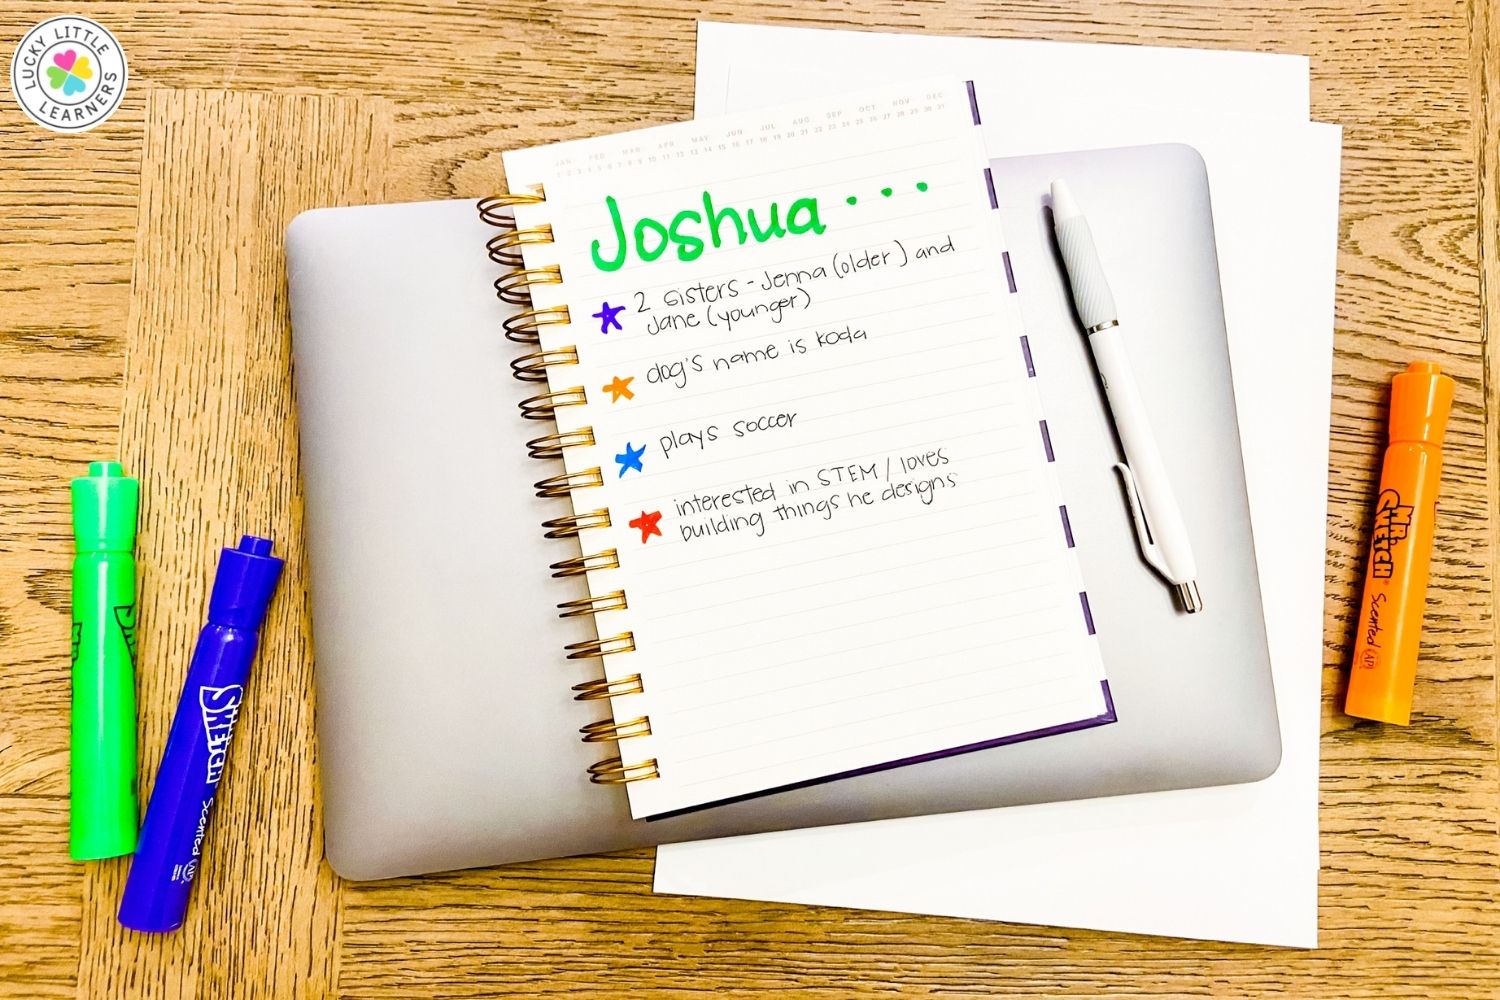 LUCKY LITTLE LEARNERS
JAN FEB MAR APR MAY JUN JUL AUG SEP OCT NOV DEC
1 2 3 4 5 6 7 8 9 10 11 12 13 14 15 16 17 18 19 20 21 22 23 24 25 26 27 28 29 30 31
Joshua...
2 sisters - Jenna (older) and
Jane (younger)
dog's name is Koda
plays soccer
interested in STEM / loves
building things he designs
MR.
SKETCH
Scented
AP
SKETCH
Scented
AP